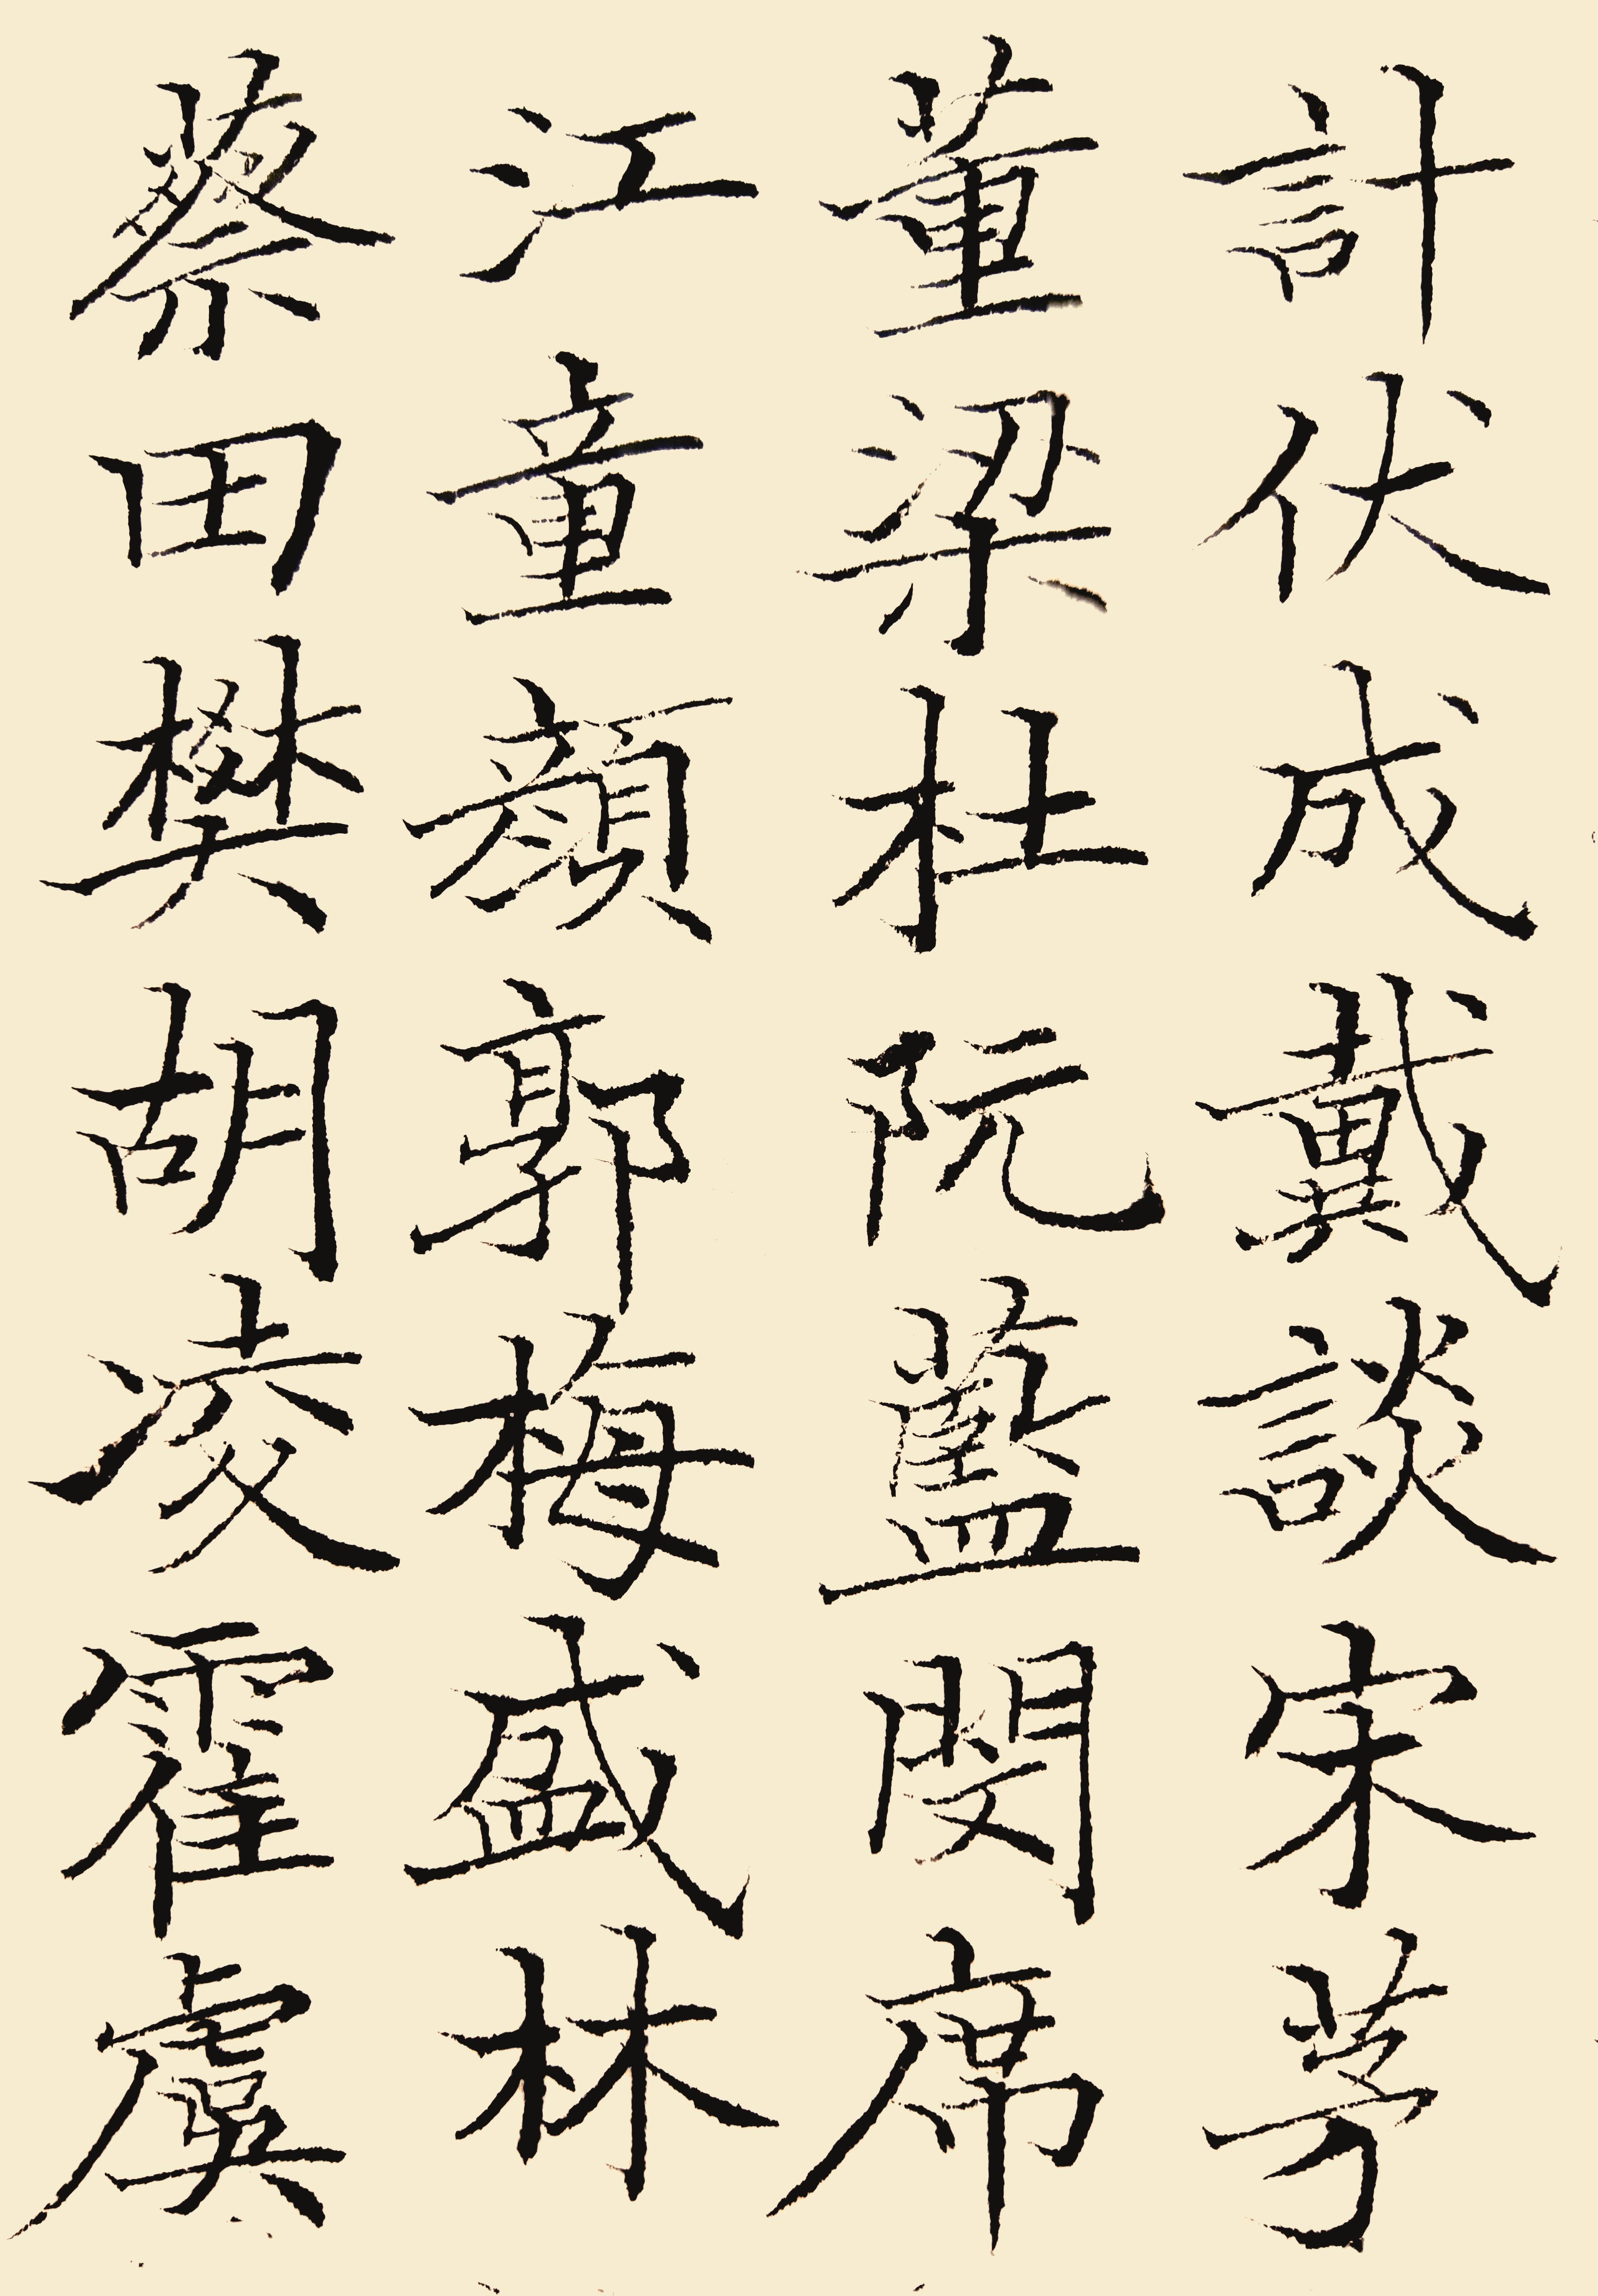 計伏成戴談宋茅
董梁杜阮藍閔席
江童顏郭梅盛林
蔡田樊胡凌霍虞